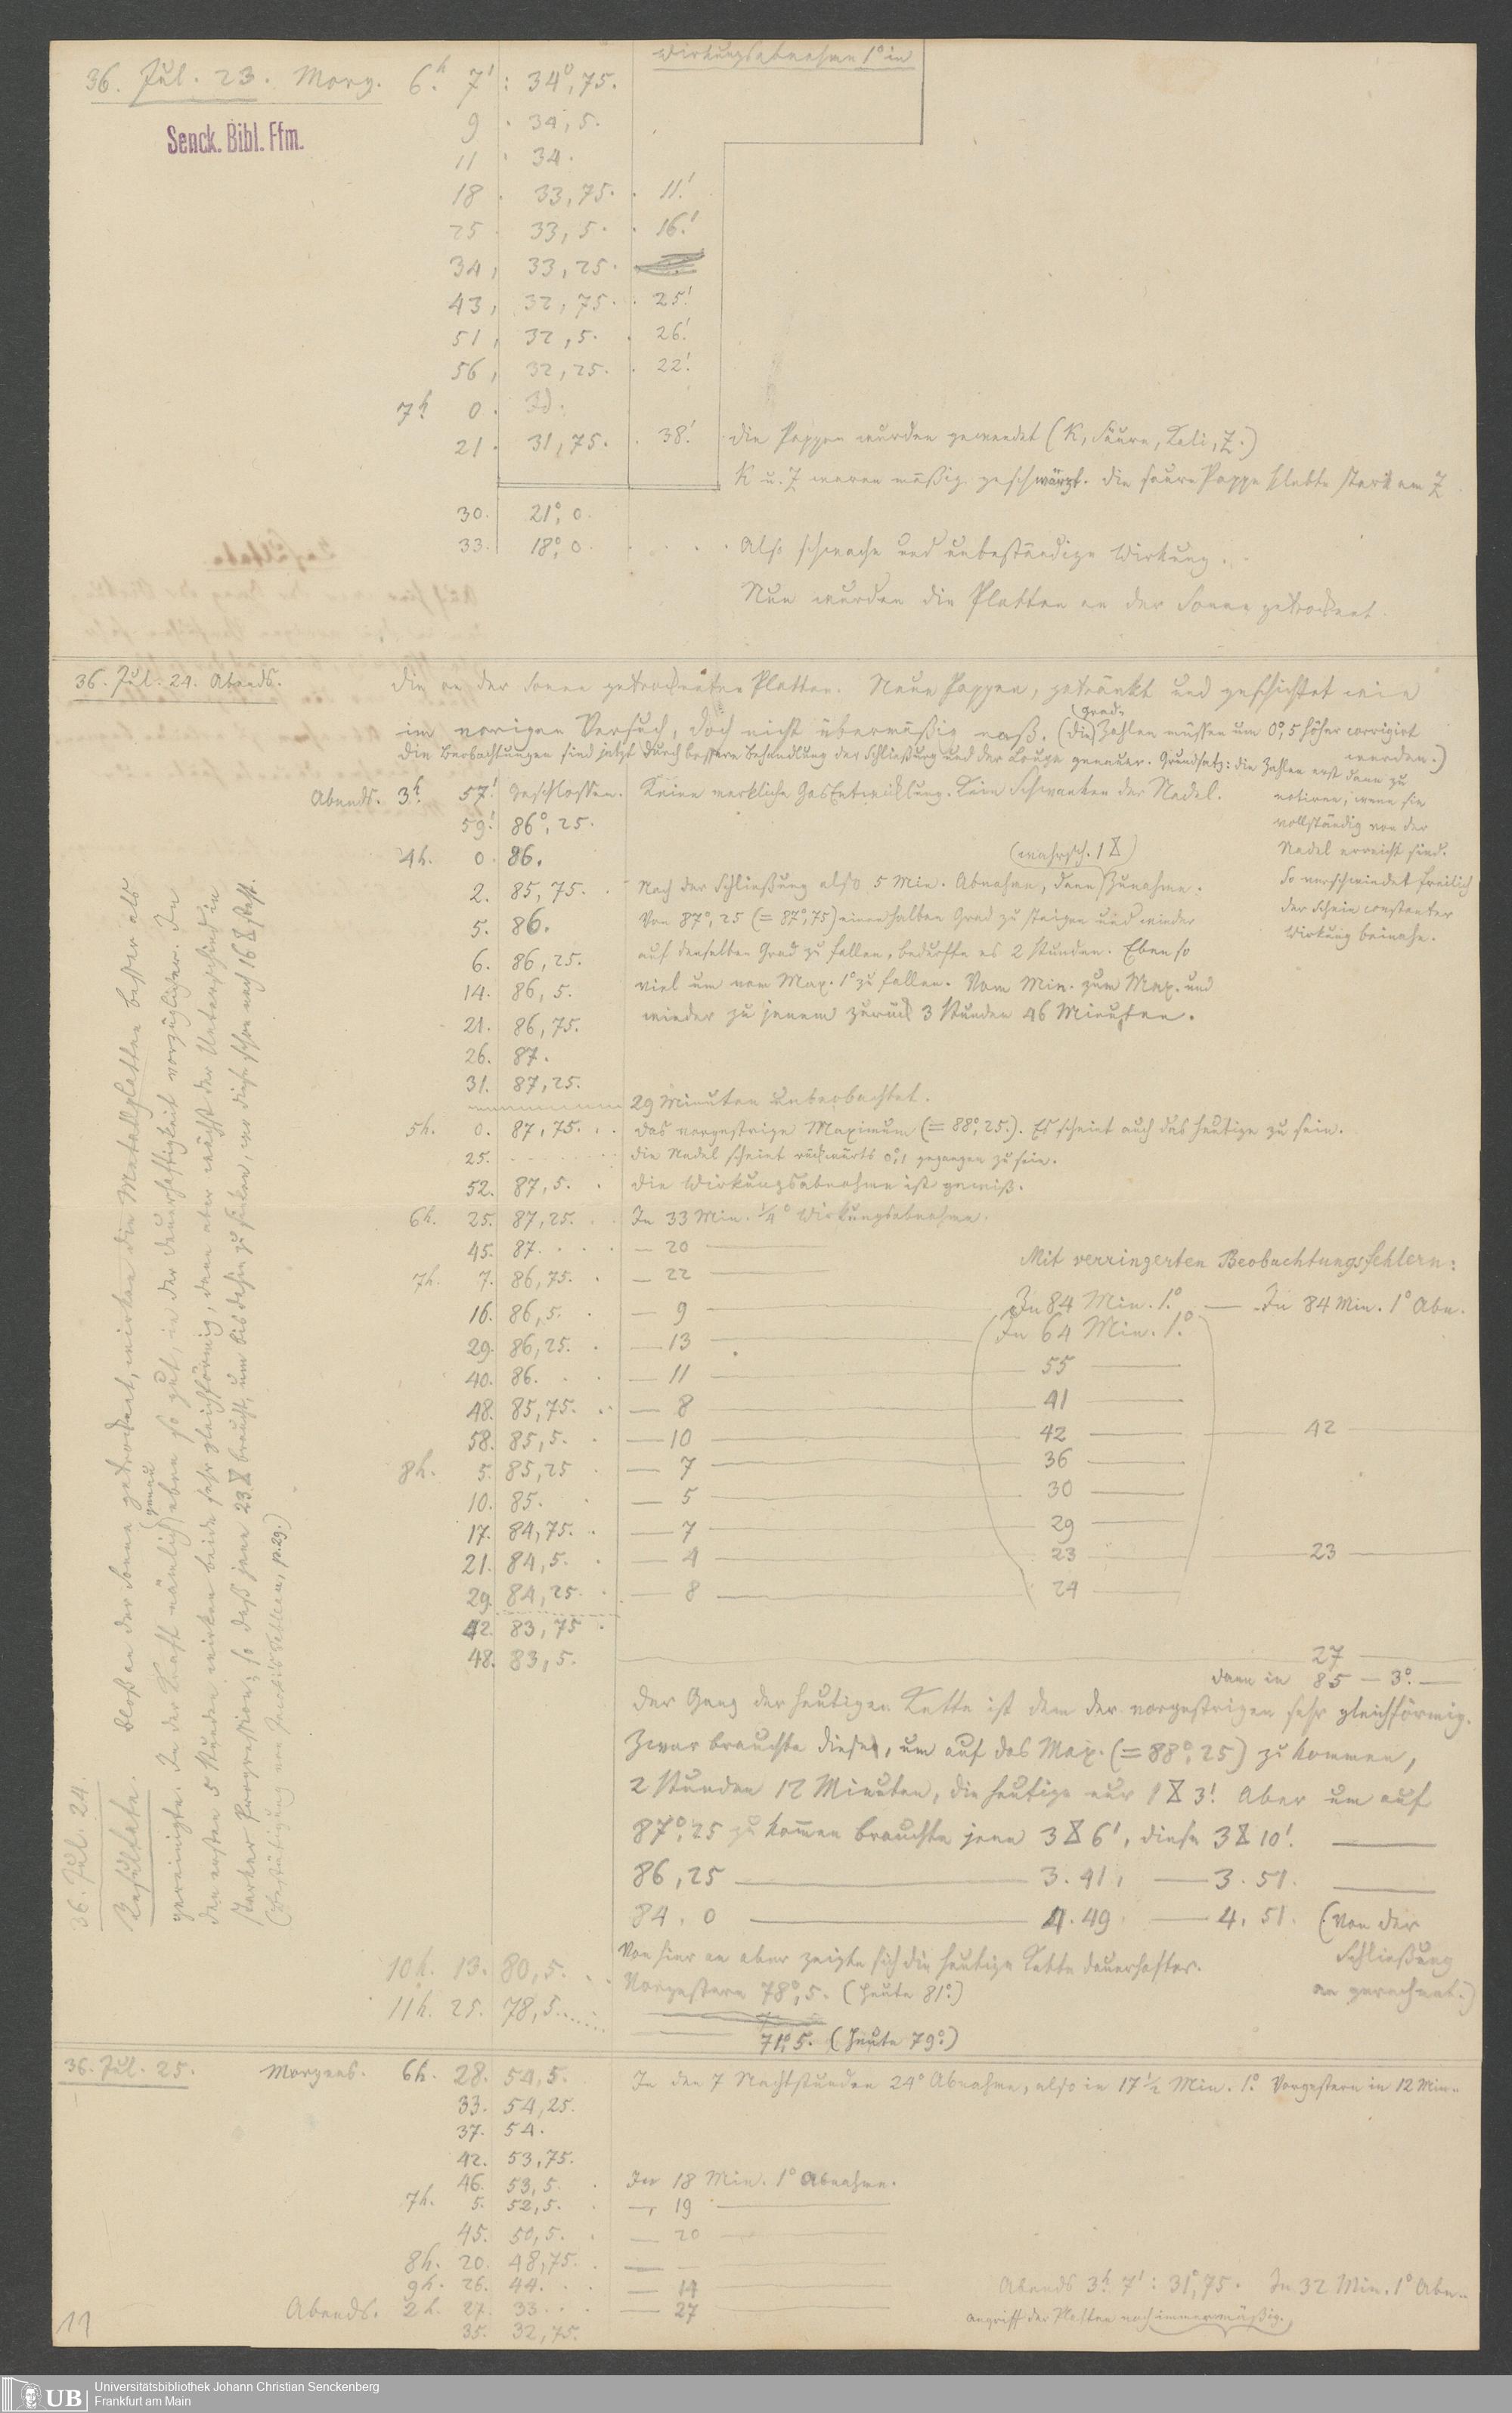 Wirkungsabnahme 1° in
36. Jul. 23. Morg. 6h. 7' : 34°,75.
Senck. Bibl. Ffm.
9 . 34,5.
11 . 34.
18 . 33,75. . 11.'
25 . 33,5. . 16.'
34, 33,25.
43, 32,75. . 25.'
51, 32,5. . 26.'
56, 32,25. . 22.'
7h. 0. Id.
21. 31,75. . 38.' . die Pappen wurden gewendet (K, Säure, Kali, Z.)
K u. Z waren mäßig geschwärzt. die saure Pappe klebte stark am Z
30. 21°,0.
33. 18°,0. . . . . Also schwache und unbeständige Wirkung.
Nun wurden die Platten an der Sonne getrocknet.
36. Jul. 24. Abends. die an der Sonne getrockneten Platten. Neue Pappen, getränkt und geschichtet wie
im vorigen Versuch, doch nicht übermäßig naß. (die Grad-Zahlen müssen um 0°,5 höher corrigirt
werden.)
die Beobachtungen sind jetzt durch bessere Behandlung der Schließung und der Loupe genauer. Grundsatz: die Zahlen erst dann zu
notiren, wenn sie
vollständig von der
Nadel erreicht sind.
So verschwindet freilich
der Schein constanter
Wirkung beinahe.
Abends. 3h. 57.' geschlossen. Keine merkliche GasEntwicklung. Kein Schwanken der Nadel.
59.' 86°,25.
4h. 0. 86.
(wahrsch. 1 )
2. 85,75. . Nach der Schließung also 5 Min. Abnahme, dann Zunahme.
5. 86. Von 87°,25 (= 87°,75) einen halben Grad zu steigen und wieder
6. 86,25. auf denselben Grad zu fallen, bedurfte es 2 Stunden. Eben so
14. 86,5. viel um vom Max. 1° zu fallen. Vom Min. zum Max. und
21. 86,75. wieder zu jenem zurück 3 Stunden 46 Minuten.
26. 87.
31. 87,25.
29 Minuten unbeobachtet.
5h. 0. 87,75. . . das vorgestrige Maximum (= 88°,25.). Es scheint auch das heutige zu sein.
25. die Nadel scheint rückwärts 0°,1 gegangen zu sein.
52. 87,5. . die Wirkungsabnahme ist gewiß.
6h. 25. 87,25. . . In 33 Min. 1/4° Wirkungsabnahme.
45. 87. . . . — 20 —
Mit verringerten Beobachtungsfehlern:
7h. 7. 86,75. . — 22 —
16. 86,5. . — 9 — In 84 Min. 1.° — In 84 Min. 1° Abn.
29. 86,25. . — 13 — (In 64 Min. 1.°)
40. 86. . . — 11 — 55 —
48. 85,75. . . — 8 — 41 —
58. 85,5. . — 10 — 42 — 42 —
8h. 5. 85,25 . — 7 — 36 —
10. 85. . — 5 — 30 —
17. 84,75. . — 7 — 29 —
21. 84,5. . — 4 — 23 — 23 —
29. 84,25. . — 8 — 24 —
42. 83,75 .
48. 83,5. — 27 —
dann in 85 — 3°. —
der Gang der heutigen Kette ist dem der vorgestrigen sehr gleichförmig.
Zwar brauchte diese, um auf das Max. (= 88°,25) zu kommen,
2 Stunden 12 Minuten, die heutige nur 1 3.' Aber um auf
87°,25 zu kommen brauchte jene 3 6', diese 3 10'. —
86,25 — 3. 41, — 3. 51. —
84,0 — 4. 49. — 4. 51. (von der
Schließung
an gerechnet.)
Von hier an aber zeigte sich die heutige Kette dauerhafter.
10h. 13. 80,5. . . Vorgestern 78°,5. (heute 81°.)
11h. 25. 78,5......
— 71°,5. (heute 79°.)
36. Jul. 24.
Resultate. Bloß an der Sonne getrocknet, wirken die Metallplatten besser als
gereinigte. In der Kraft nämlich (genau) eben so gut, in der Dauerhaftigkeit vorzüglicher. In
den ersten 5 Stunden wirken beide sehr gleichförmig, dann aber wächst der Unterschied in
starker Progression; so daß jene 23 braucht, um bis dahin zu sinken, wo diese schon nach 16 steht.
(Bestätigung von Jacobis Sätzen, p. 29.)
36. Jul. 25. Morgens. 6h. 28. 54,5. In den 7 Nachtstunden 24° Abnahme, also in 17 1/2 Min. 1.° Vorgestern in 12 Min..
33. 54,25.
37. 54.
42. 53,75.
46. 53,5. . In 18 Min. 1° Abnahme.
7h. 5. 52,5. . — 19 —
45. 50,5. . — 20 —
8h. 20. 48,75. . — — —
9h. 26. 44. . . — 14 — Abends 3h. 7' : 31°,75. In 32 Min. 1° Abn..
Abends. 2h. 27. 33. . . . — 27 — Angriff der Platten noch immer mäßig.
35. 32,75.
11
UB
Universitätsbibliothek Johann Christian Senckenberg
Frankfurt am Main